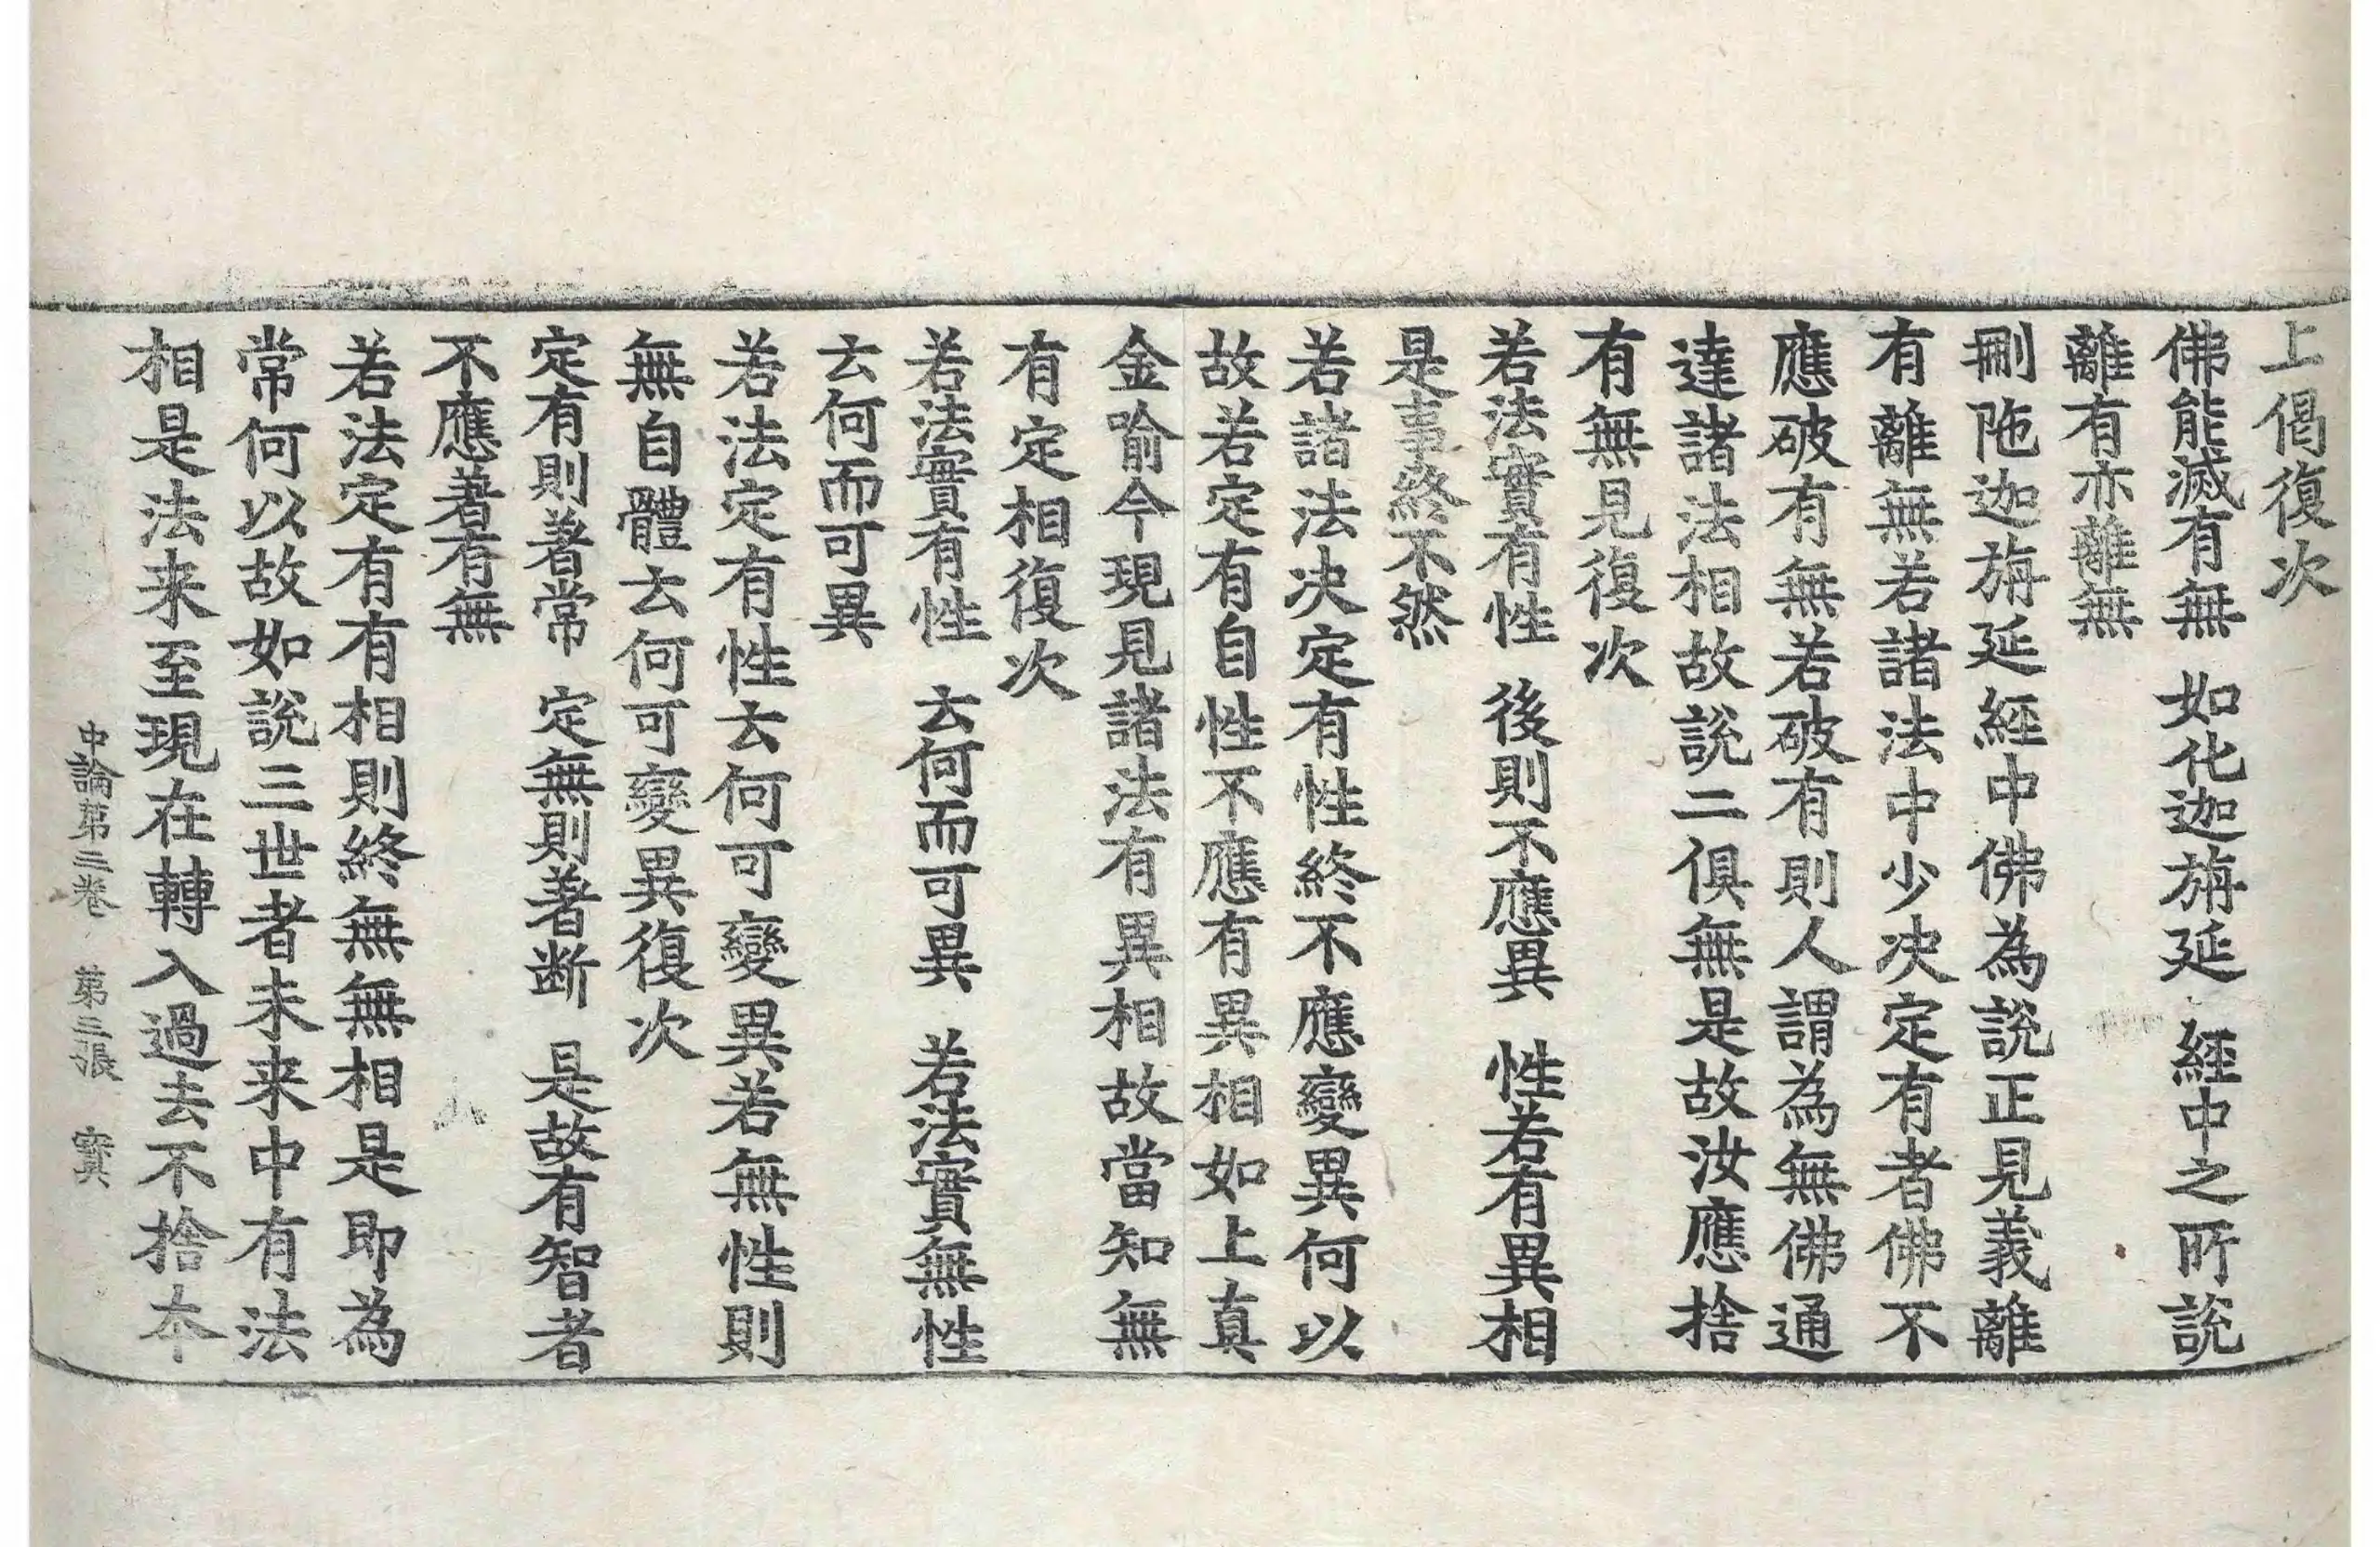 上偈復次
佛能滅有無　如化迦旃延　經中之所說
離有亦離無
刪陁迦旃延經中佛為說正見義離
有離無若諸法中少决定有者佛不
應破有無若破有則人謂為無佛通
達諸法相故說二俱無是故汝應捨
有無見復次
若法實有性　後則不應異　性若有異相
是事終不然
若諸法决定有性終不應變異何以
故若定有自性不應有異相如上真
金喻今現見諸法有異相故當知無
有定相復次
若法實有性　云何而可異　若法實無性
云何而可異
若法定有性云何可變異若無性則
無自體云何可變異復次
定有則著常　定無則著断　是故有智者
不應著有無
若法定有有相則終無無相是即為
常何以故如說三世者未来中有法
相是法来至現在轉入過去不捨本
中論第三卷　第三張　實